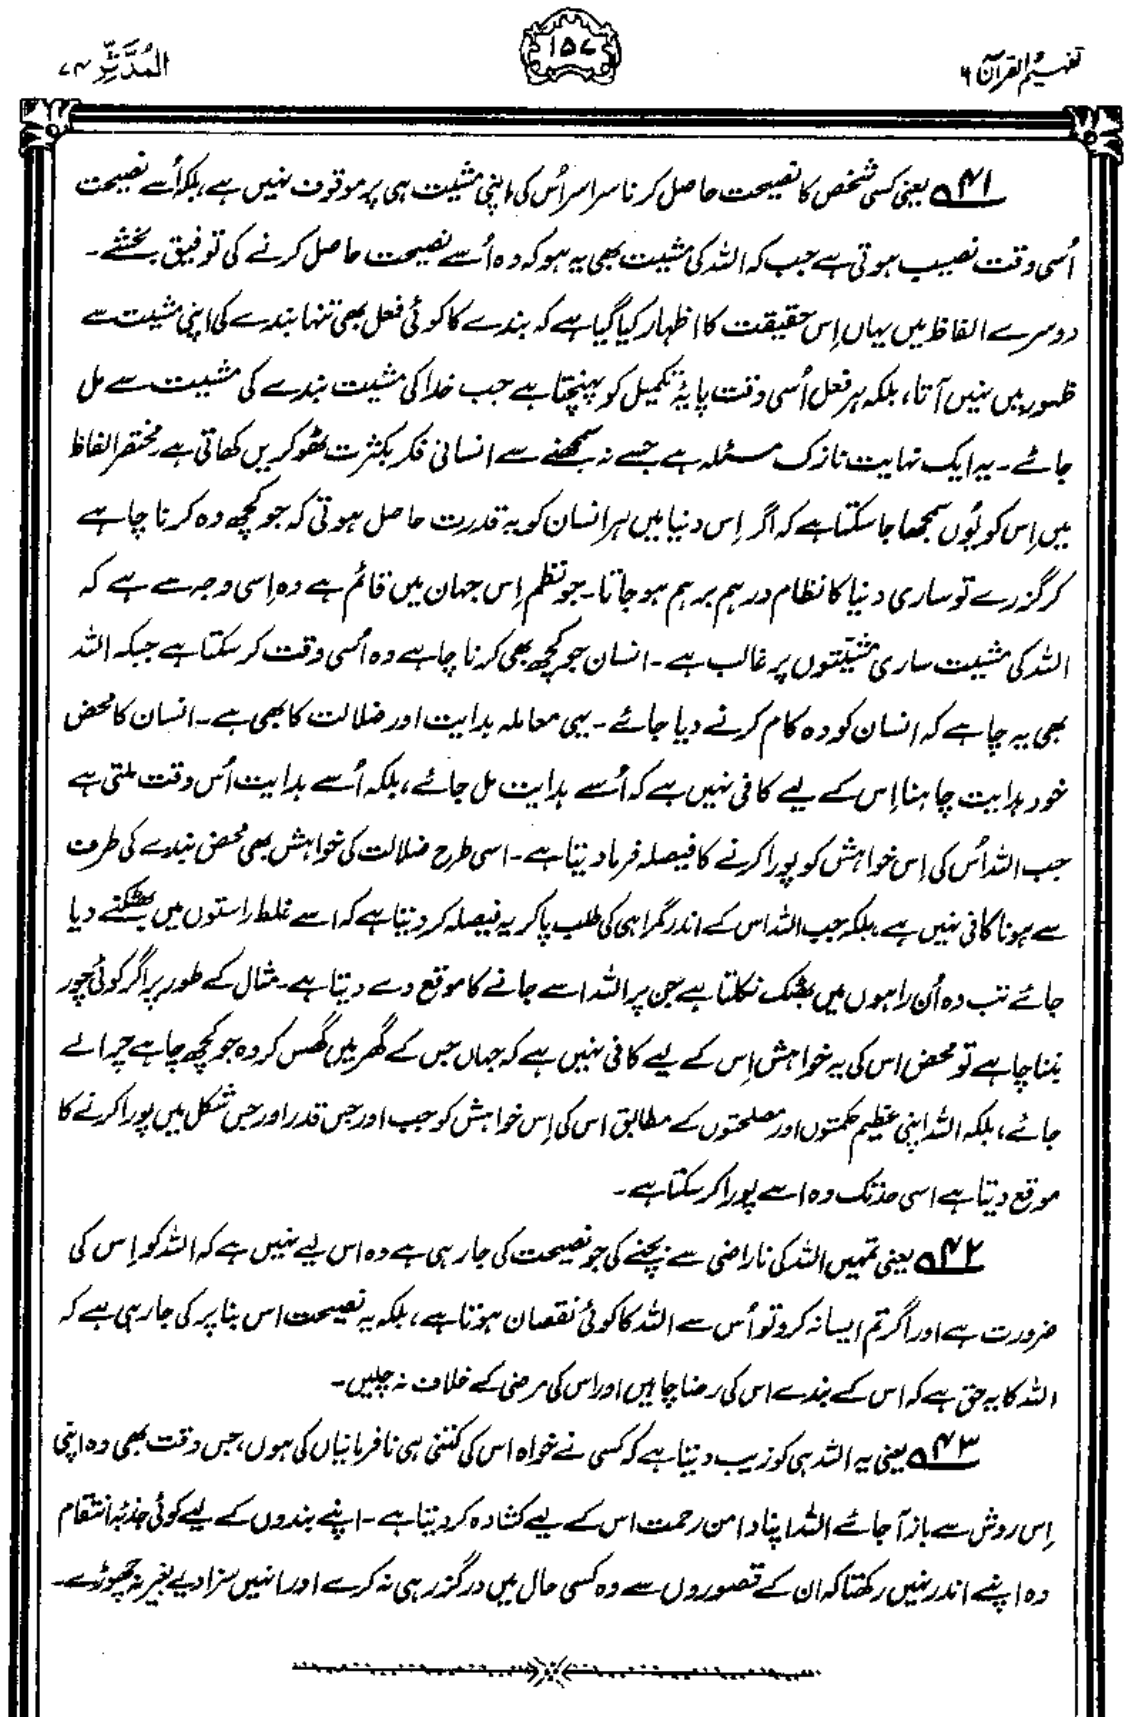 تفہیم القرآن ۶
۱۵۷
المُدَّثِّر ۷۴
۴۱؎ یعنی کسی شخص کا نصیحت حاصل کرنا سراسر اُس کی اپنی مشیت ہی پر موقوف نہیں ہے، بلکہ اُسے نصیحت
اُسی وقت نصیب ہوتی ہے جب کہ اللہ کی مشیت بھی یہ ہو کہ وہ اُسے نصیحت حاصل کرنے کی توفیق بخشے۔
دوسرے الفاظ میں یہاں اِس حقیقت کا اظہار کیا گیا ہے کہ بندے کا کوئی فعل بھی تنہا بندے کی اپنی مشیت سے
ظہور میں نہیں آتا، بلکہ ہر فعل اُسی وقت پایۂ تکمیل کو پہنچتا ہے جب خدا کی مشیت بندے کی مشیت سے مل
جائے۔ یہ ایک نہایت نازک مسئلہ ہے جسے نہ سمجھنے سے انسانی فکر بکثرت ٹھوکریں کھاتی ہے۔ مختصر الفاظ
میں اِس کو یُوں سمجھا جا سکتا ہے کہ اگر اِس دنیا میں ہر انسان کو یہ قدرت حاصل ہوتی کہ جو کچھ وہ کرنا چاہے
کر گزرے تو ساری دنیا کا نظام درہم برہم ہو جاتا۔ جو نظم اِس جہان میں قائم ہے وہ اِسی وجہ سے ہے کہ
اللہ کی مشیت ساری مشیّتوں پر غالب ہے۔ انسان جو کچھ بھی کرنا چاہے وہ اُسی وقت کر سکتا ہے جبکہ اللہ
بھی یہ چاہے کہ انسان کو وہ کام کرنے دیا جائے۔ یہی معاملہ ہدایت اور ضلالت کا بھی ہے۔ انسان کا محض
خود ہدایت چاہنا اِس کے لیے کافی نہیں ہے کہ اُسے ہدایت مل جائے، بلکہ اُسے ہدایت اُس وقت ملتی ہے
جب اللہ اُس کی اِس خواہش کو پورا کرنے کا فیصلہ فرما دیتا ہے۔ اسی طرح ضلالت کی خواہش بھی محض بندے کی طرف
سے ہونا کافی نہیں ہے، بلکہ جب اللہ اس کے اندر گمراہی کی طلب پا کر یہ فیصلہ کر دیتا ہے کہ اسے غلط راستوں میں بھٹکنے دیا
جائے تب وہ اُن راہوں میں بھٹک نکلتا ہے جن پر اللہ اسے جانے کا موقع دے دیتا ہے۔ مثال کے طور پر اگر کوئی چور
بننا چاہے تو محض اس کی یہ خواہش اِس کے لیے کافی نہیں ہے کہ جہاں جس کے گھر میں گھس کر وہ جو کچھ چاہے چرا لے
جائے، بلکہ اللہ اپنی عظیم حکمتوں اور مصلحتوں کے مطابق اس کی اِس خواہش کو جب اور جس قدر اور جس شکل میں پورا کرنے کا
موقع دیتا ہے اسی حد تک وہ اسے پورا کر سکتا ہے۔
۴۲؎ یعنی تمہیں اللہ کی ناراضی سے بچنے کی جو نصیحت کی جا رہی ہے وہ اس لیے نہیں ہے کہ اللہ کو اِس کی
ضرورت ہے اور اگر تم ایسا نہ کرو تو اُس سے اللہ کا کوئی نقصان ہوتا ہے، بلکہ یہ نصیحت اس بنا پر کی جا رہی ہے کہ
اللہ کا یہ حق ہے کہ اس کے بندے اس کی رضا چاہیں اور اس کی مرضی کے خلاف نہ چلیں۔
۴۳؎ یعنی یہ اللہ ہی کو زیب دیتا ہے کہ کسی نے خواہ اس کی کتنی ہی نافرمانیاں کی ہوں، جس وقت بھی وہ اپنی
اِس روش سے باز آ جائے اللہ اپنا دامن رحمت اس کے لیے کشادہ کر دیتا ہے۔ اپنے بندوں کے لیے کوئی جذبۂ انتقام
وہ اپنے اندر نہیں رکھتا کہ ان کے قصوروں سے وہ کسی حال میں درگزر ہی نہ کرے اور انہیں سزا دیے بغیر نہ چھوڑے۔